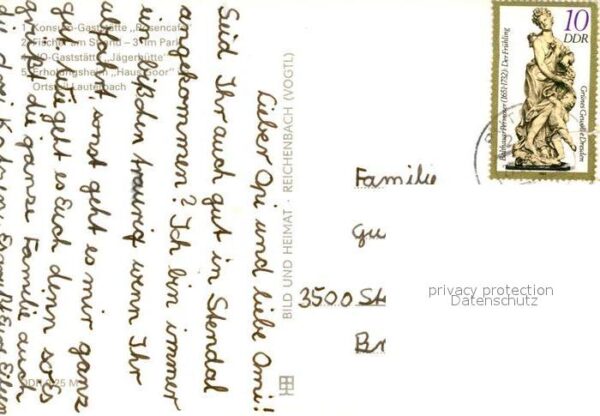 Lieber Opi und liebe Omi!!
Seid Ihr auch gut in Stendal
angekommen? Ich bin immer
ein bißchen traurig wenn Ihr
abfahrt, sonst geht es mir ganz
gut. Wie geht es Euch denn so? Es
grüßt die ganze Familie auch
1. Konsum-Gaststätte „Rosencafé"
2. Fischer am Strand – 3. Im Park
4. HO-Gaststätte „Jägerhütte"
5. Erholungsheim „Haus Goor"
Ortsteil Lauterbach
DDR 0,25 M
BILD UND HEIMAT · REICHENBACH (VOGTL)
10
DDR
Balthasar Permoser (1651-1732): Der Frühling
Grünes Gewölbe Dresden
Familie
Gu
3500 St
Br
privacy protection
Datenschutz